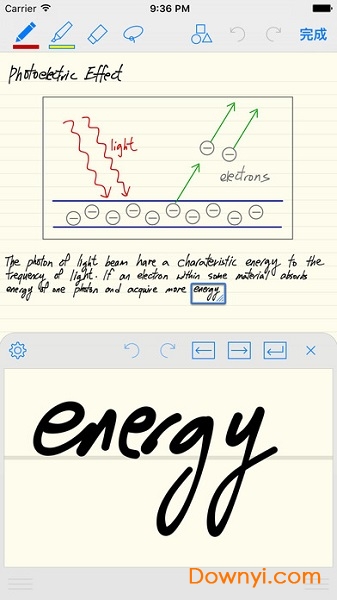 Carrier 9:36 PM
完成
Photoelectric Effect
light
electrons
The photon of light beam have a charateristic energy to the
frequency of light. If an electron within some material absorbs
energy of one photon and acquire more energy
energy
Downyi.com